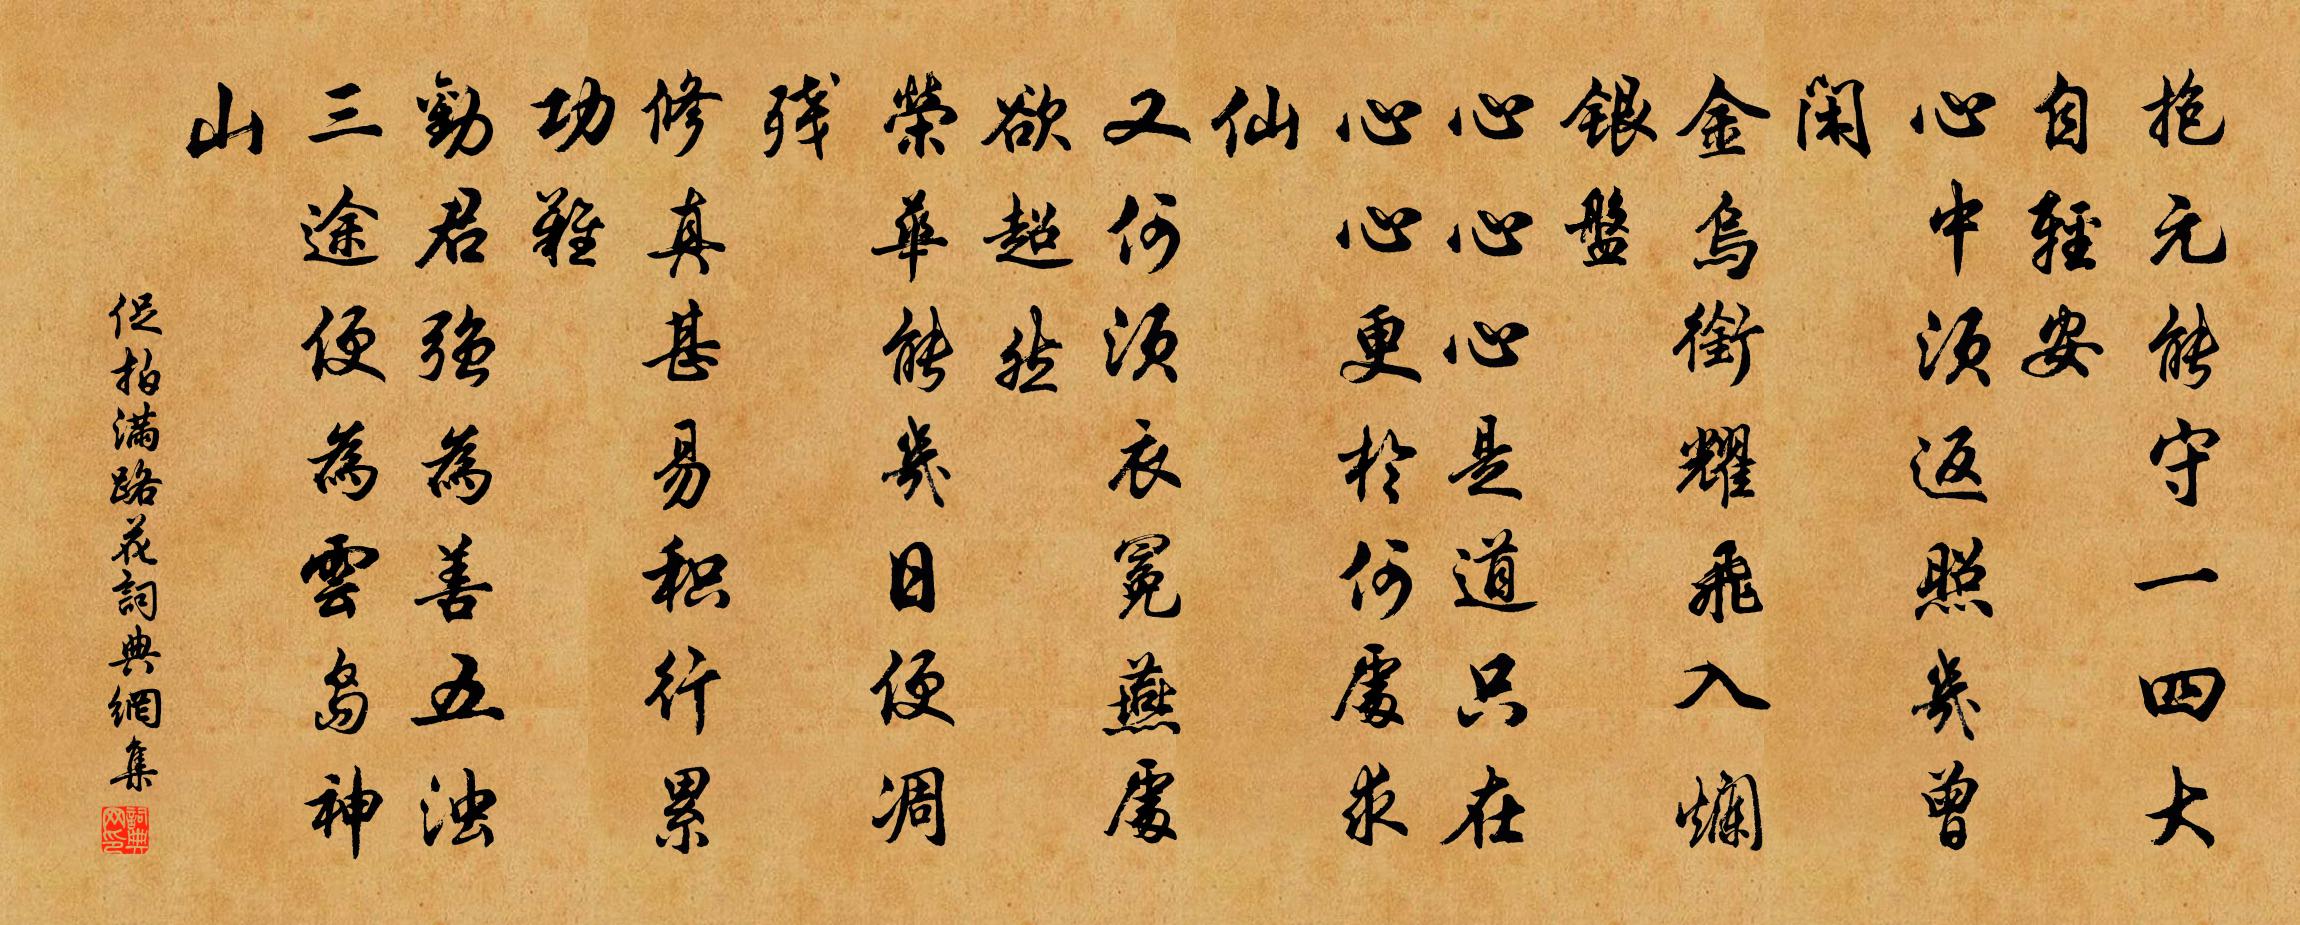 抱元能守一四大
自輕安
心中須返照幾曾
閑
金烏銜耀飛入爛
銀盤
心心心是道只在
心心更於何處求
仙
又何須衣冕燕處
欲超然
榮華能幾日便凋
殘
修真甚易积行累
功難
勸君強為善五浊
三途便為雲島神
山
促拍滿路花詞典網集
詞典網印